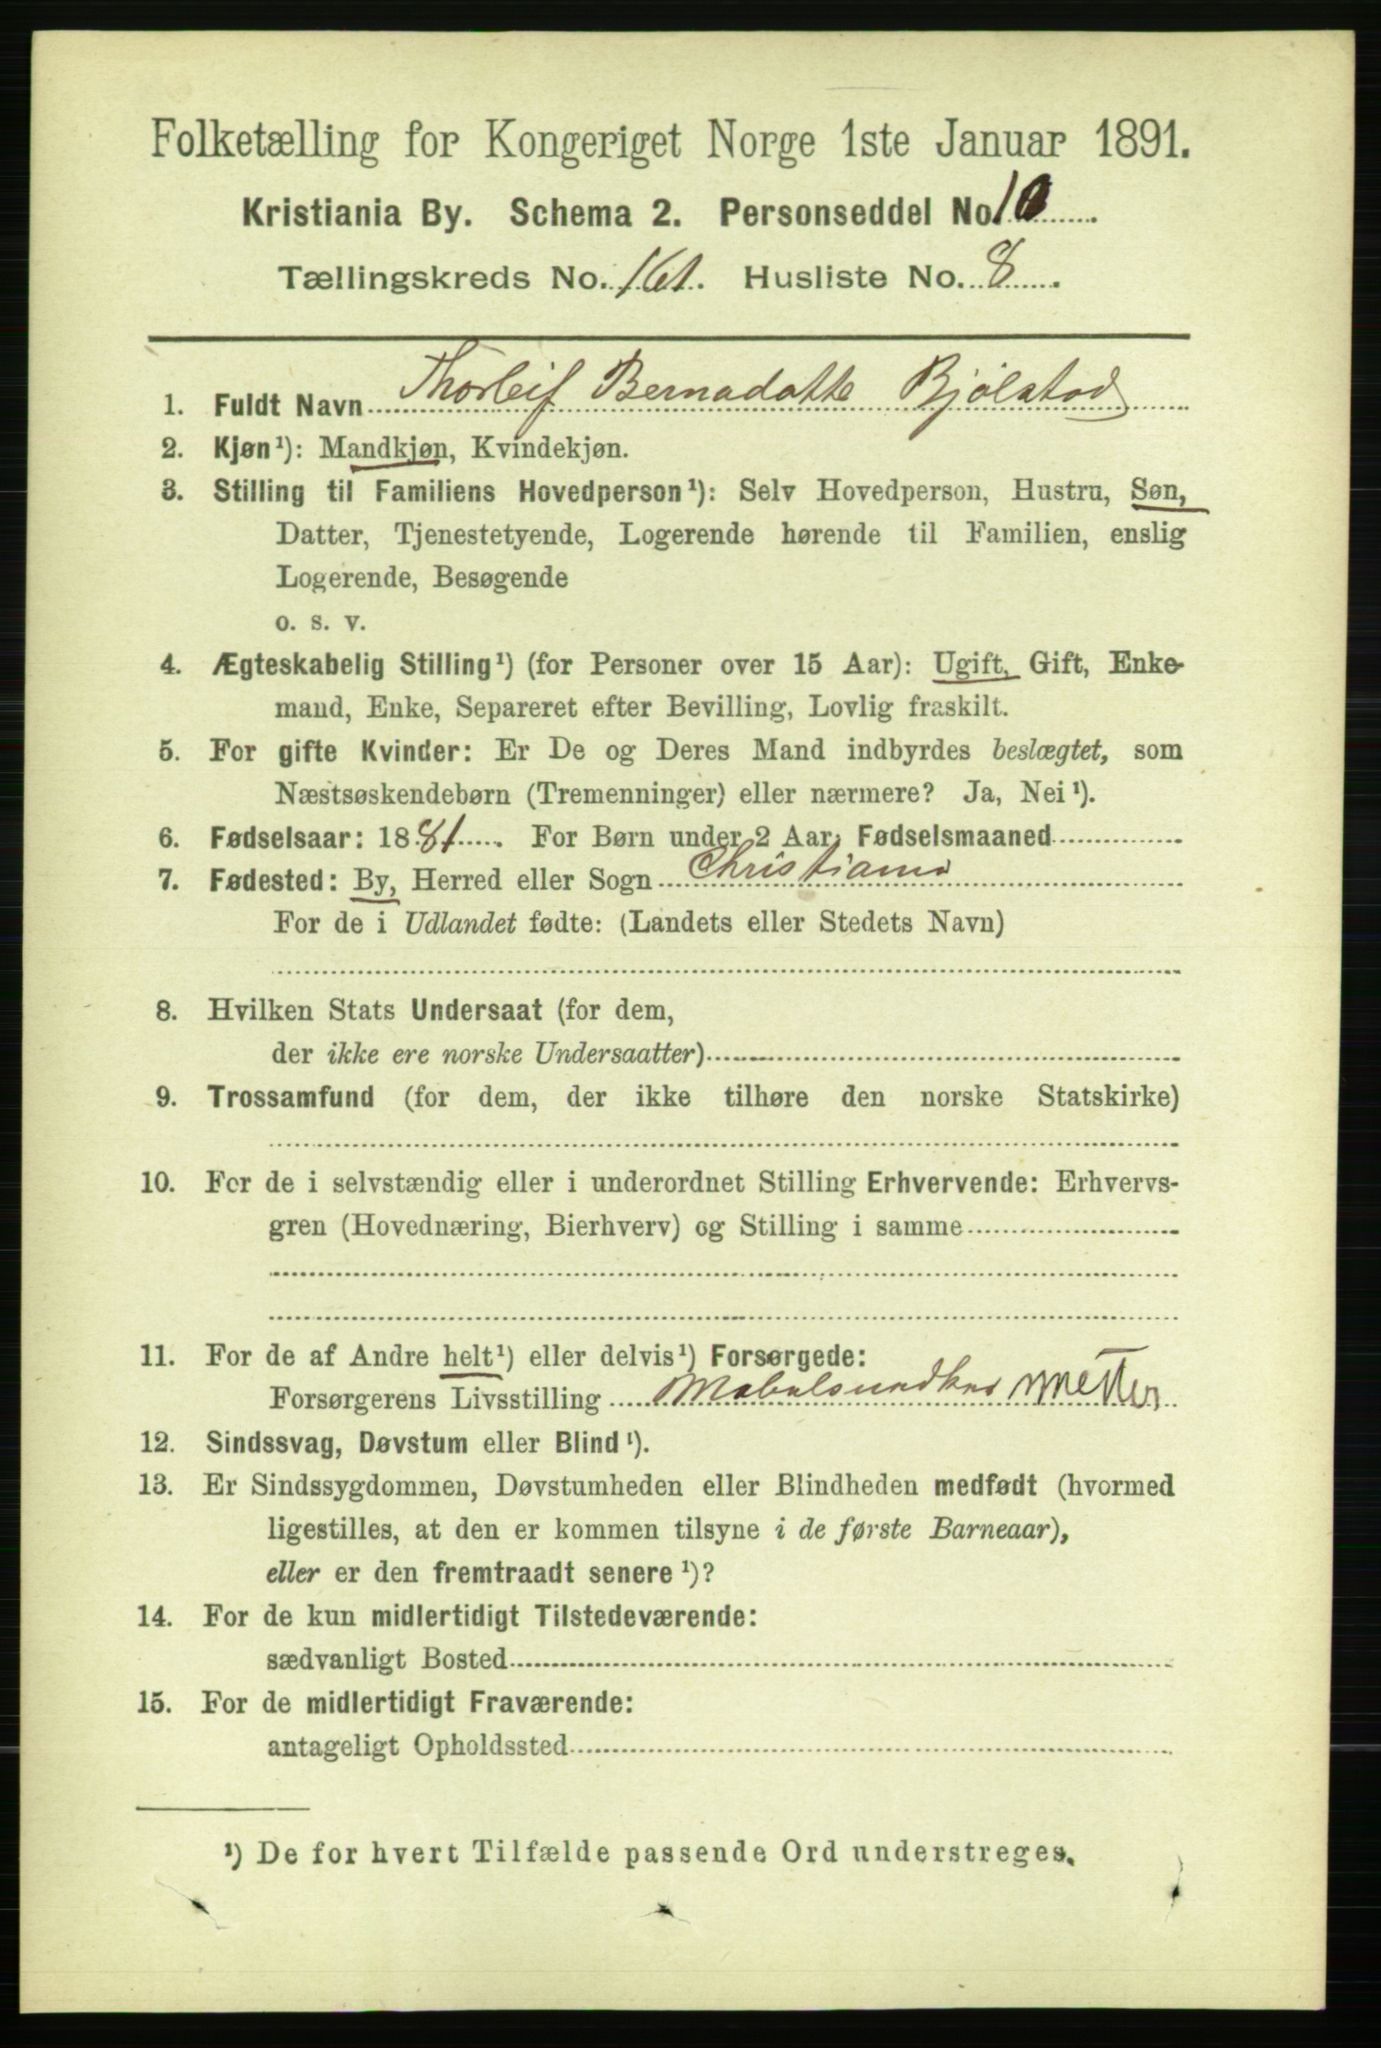 Folketælling for Kongeriget Norge 1ste Januar 1891.
Kristiania By. Schema 2. Personseddel No 10
Tællingskreds No. 161. Husliste No. 8
1. Fuldt Navn Thorleif Bernadotte Bjölstad
2. Kjøn¹): Mandkjøn, Kvindekjøn.
3. Stilling til Familiens Hovedperson¹): Selv Hovedperson, Hustru, Søn,
Datter, Tjenestetyende, Logerende hørende til Familien, enslig
Logerende, Besøgende
o. s. v.
4. Ægteskabelig Stilling¹) (for Personer over 15 Aar): Ugift, Gift, Enke-
mand, Enke, Separeret efter Bevilling, Lovlig fraskilt.
5. For gifte Kvinder: Er De og Deres Mand indbyrdes beslægtet, som
Næstsøskendebørn (Tremenninger) eller nærmere? Ja, Nei¹).
6. Fødselsaar: 1881. For Børn under 2 Aar, Fødselsmaaned
7. Fødested: By, Herred eller Sogn Christiania
For de i Udlandet fødte: (Landets eller Stedets Navn)
8. Hvilken Stats Undersaat (for dem,
der ikke ere norske Undersaatter)
9. Trossamfund (for dem, der ikke tilhøre den norske Statskirke)
10. For de i selvstændig eller i underordnet Stilling Erhvervende: Erhvervs-
gren (Hovednæring, Bierhverv) og Stilling i samme
11. For de af Andre helt¹) eller delvis¹) Forsørgede:
Forsørgerens Livsstilling
12. Sindssvag, Døvstum eller Blind¹).
13. Er Sindssygdommen, Døvstumheden eller Blindheden medfødt (hvormed
ligestilles, at den er kommen tilsyne i de første Barneaar),
eller er den fremtraadt senere¹)?
14. For de kun midlertidigt Tilstedeværende:
sædvanligt Bosted
15. For de midlertidigt Fraværende:
antageligt Opholdssted
¹) De for hvert Tilfælde passende Ord understreges.